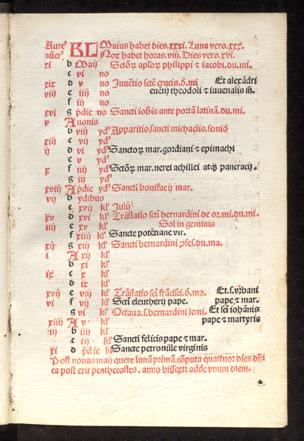 Aure⁹ KL Maius habet dies .xxxi. Luna vero .xxx.
nūer⁹ Nox habet horas .viii. Dies vero .xvi.
xi b Maij Sctōꝝ aplōꝝ philippi ⁊ iacobi .du.mi.
c vi no
xix d v no Inuētio sctē crucis .ō.mi Et alexādri
viij e iiij no euētij theodoli ⁊ iuuenalis m̄.
f iij no
xvi g pdie no Sancti iobis ante portā latinā .du.mi.
v A nonis
b viij yd⁹ Apparitio sancti michaelis .semiō
xiij c vij yd⁹
ij d vj yd⁹ Sanctoꝝ mar. gordiani ⁊ epimachi
e v yd⁹
x f iiij yd⁹ Sctōꝝ mar. nerei achillei atqꝫ pancracij.
g iij yd⁹
xviij A pdie yd⁹ Sancti bonifacij mar.
vij b ydibus
c xvij kl⁹ Iulij
xv d xvi kl⁹ Trāslatio scti bernardini de or.mi.du.mi.
iiij e xv kl⁹ Sol in geminis
f xiiij kl⁹ Sancte potētiane vir.
xij g xiij kl⁹ Sancti bernardini ꝯfes.du.ma.
i A xij kl⁹
b xi kl⁹
ix c x kl⁹
d ix kl⁹
xvij e viij kl⁹ Trāslatio sci frācisci .ō.ma. Et .s. vrbani
vi f vij kl⁹ Scti eleutherij pape. pape ⁊ mar.
g vi kl⁹ Octaua .s. bernardini semi. Et sci iohānis
xiiij A v kl⁹ pape ⁊ martyris
iij b iiij kl⁹
c iij kl⁹ Sancti felicis pape ⁊ mar.
xi d pdie kl⁹ Sancte petronille virginis
Post nonas maij quere lunā primā. cōputa quattuor dies dn̄i
ca post erit penthecostes. anno bisexti adde vnum diem.